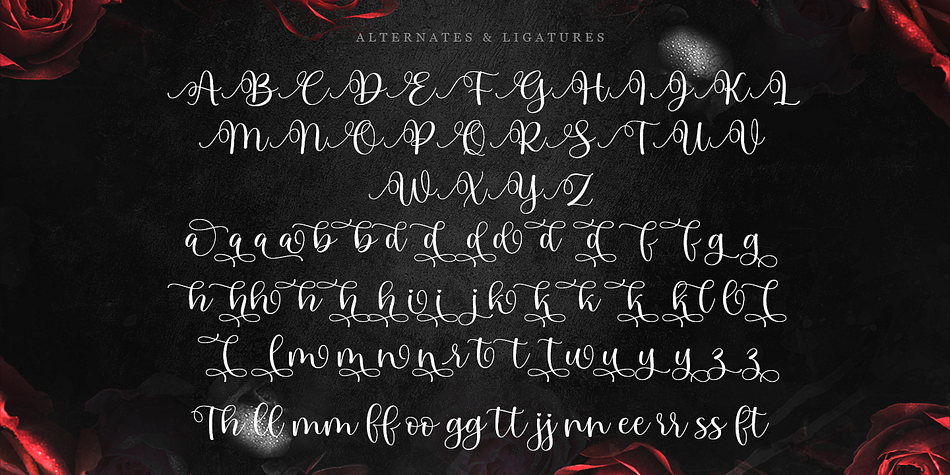 ALTERNATES & LIGATURES
A B C D E F G H I J K L
M N O P Q R S T U V
W X Y Z
a a a a b b d d d d d d f f g g
h h h h h h i i j k k k k k l l l
l l m m n n r t t t w u y y z z
Th ll mm ff oo gg tt jj nn ee rr ss ft